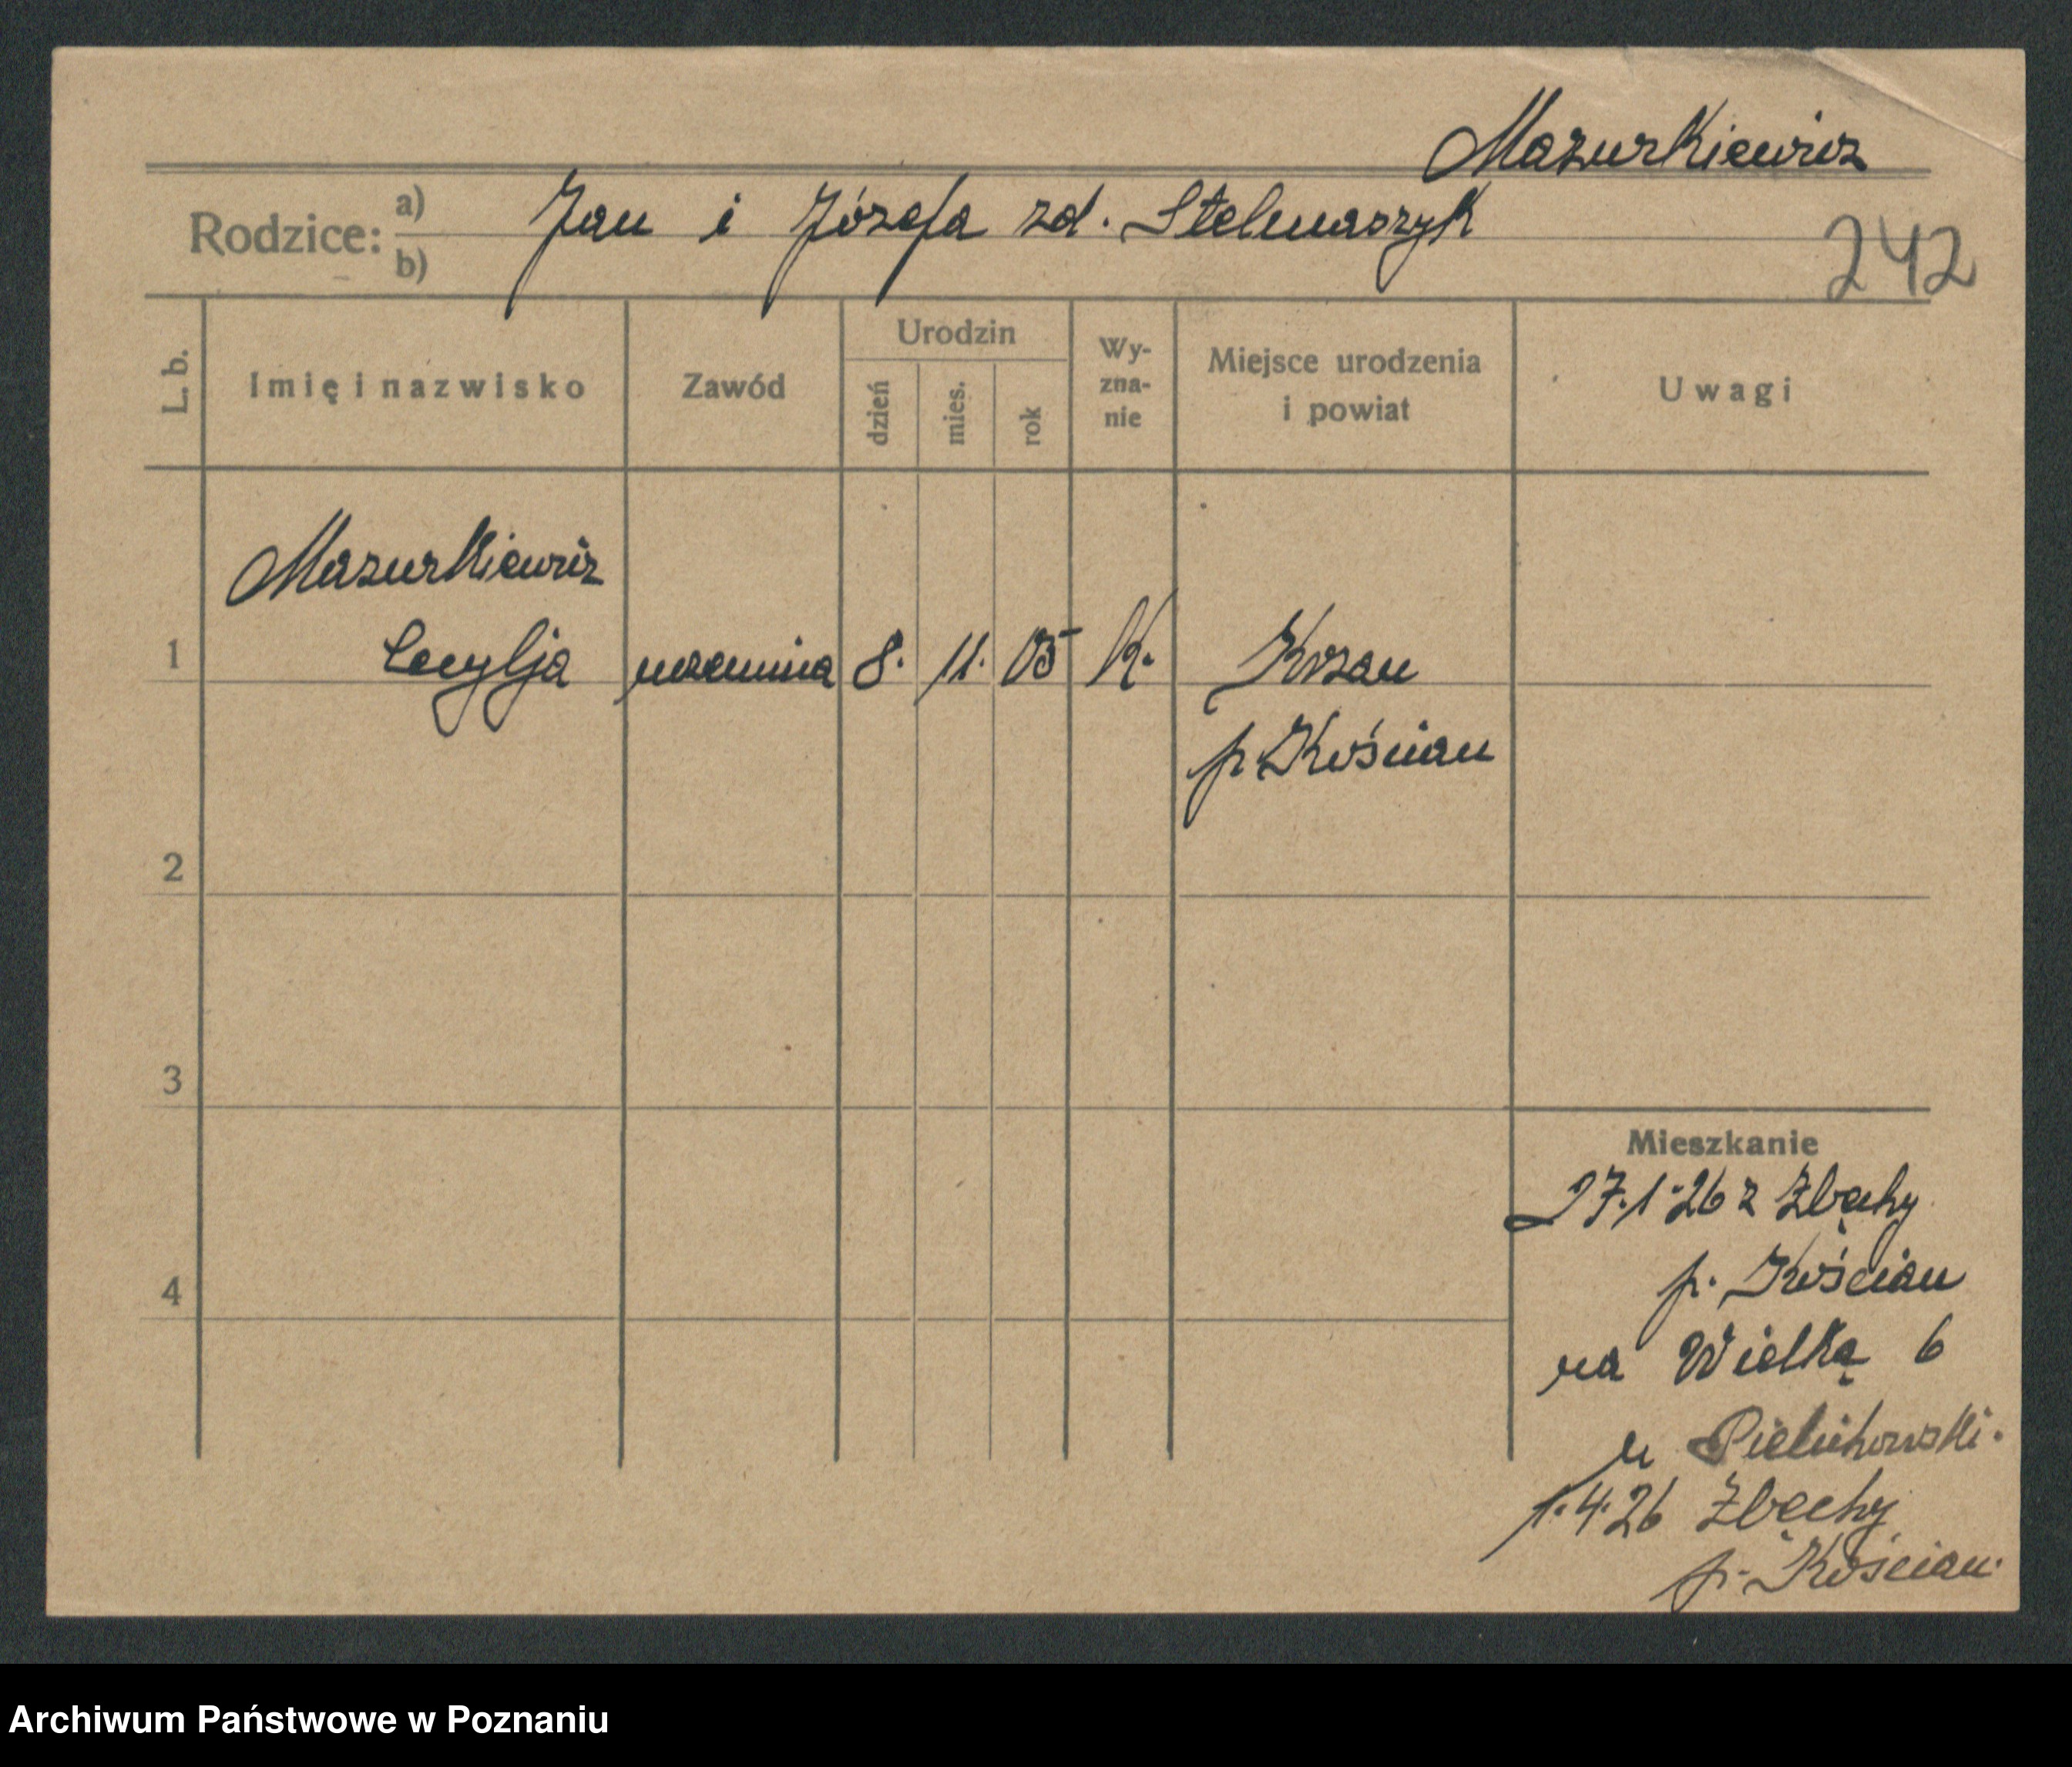 Mazurkiewicz
Rodzice: a) b) Jan i Józefa zd. Stelmaszyk
242
L. b. Imię i nazwisko Zawód Urodzin dzień mies. rok Wy-zna-nie Miejsce urodzenia i powiat Uwagi
Mazurkiewicz
1 Cecylja uczennica 8. 11. 05 K.
p. Kościan
2
3
Mieszkanie
27.1.26 z Zbęchy
p. Kościan
4
na Wielką 6
u
1.4.26 Zbęchy
p. Kościan
Archiwum Państwowe w Poznaniu